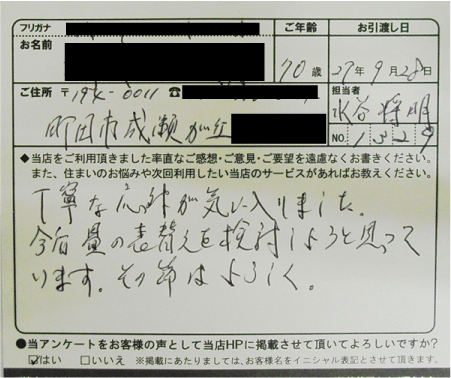 フリガナ
お名前
ご年齢
70歳
お引渡し日
27年9月28日
ご住所 〒194-0011 ☎
町田市成瀬が丘
担当者
水谷将明
NO. 1329
◆当店をご利用頂きました率直なご感想・ご意見・ご要望を遠慮なくお書きください。
また、住まいのお悩みや次回利用したい当店のサービスがあればお教えください。
丁寧な応対が気に入りました。
今后畳の表替えを検討しようと思って
います。その節はよろしく。
●当アンケートをお客様の声として当店HPに掲載させて頂いてよろしいですか?
☑はい □いいえ ※掲載にあたりましては、お客様名をイニシャル表記とさせて頂きます。